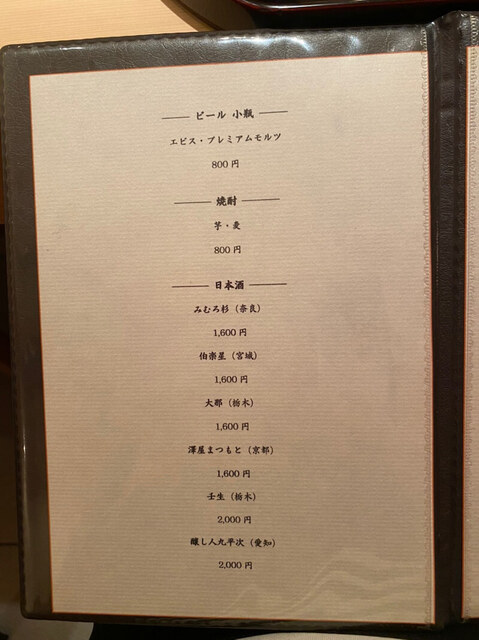 ビール 小瓶
エビス・プレミアムモルツ
800 円
焼酎
芋・麦
800 円
日本酒
みむろ杉（奈良）
1,600 円
伯楽星（宮城）
1,600 円
大那（栃木）
1,600 円
澤屋まつもと（京都）
1,600 円
壬生（栃木）
2,000 円
醸し人九平次（愛知）
2,000 円